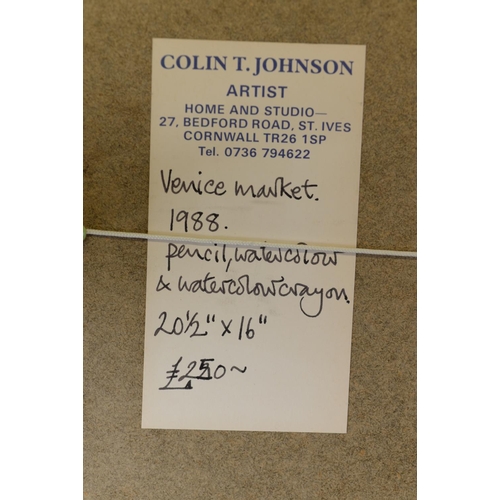 COLIN T. JOHNSON
ARTIST
HOME AND STUDIO—
27, BEDFORD ROAD, ST. IVES
CORNWALL TR26 1SP
Tel. 0736 794622
Venice market.
1988.
pencil, watercolour
& watercolour crayon.
20½" x 16"
£250~